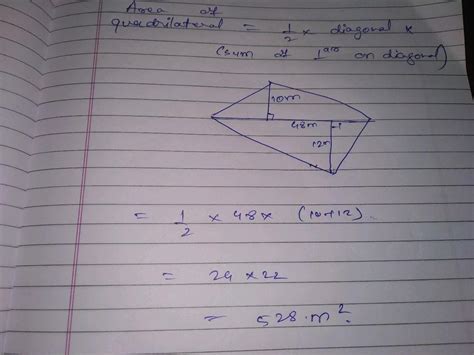 Area of
quadrilateral = 1/2 × diagonal ×
(sum of 1ars on diagonal)
10m
48m
12m
= 1/2 × 48 × (10+12)
= 24 × 22
= 528 m².